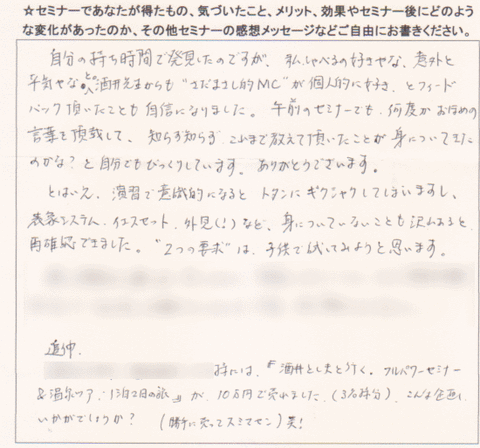 ☆セミナーであなたが得たもの、気づいたこと、メリット、効果やセミナー後にどのよう
な変化があったのか、その他セミナーの感想メッセージなどご自由にお書きください。
自分の持ち時間で発見したのですが、私、しゃべるの好きやな、意外と
平気やな。と 酒井先生からも "さだまさし的MC" が 個人的に好き、とフィード
バック頂いたことも自信になりました。午前のセミナーでも、何度か お褒めの
言葉を頂戴して、知らず知らず、これまで教えて頂いたことが身についてきた
のかな?と自分でもびっくりしています。ありがとうございます。
とはいえ、演習で意識的になると トタンにギクシャクしてしまいますし、
表象システム、イエスセット、外見(!)など、身についていないことも沢山あると
再確認できました。"2つの要求" は、子供で試してみようと思います。
追伸.
時には、『酒井とし夫と行く。フルパワーセミナー
&温泉ツアー 1泊2日の旅』が、10万円で売れました。(3名様分) こんな企画、
いかがでしょうか? (勝手に売ってスミマセン)笑!